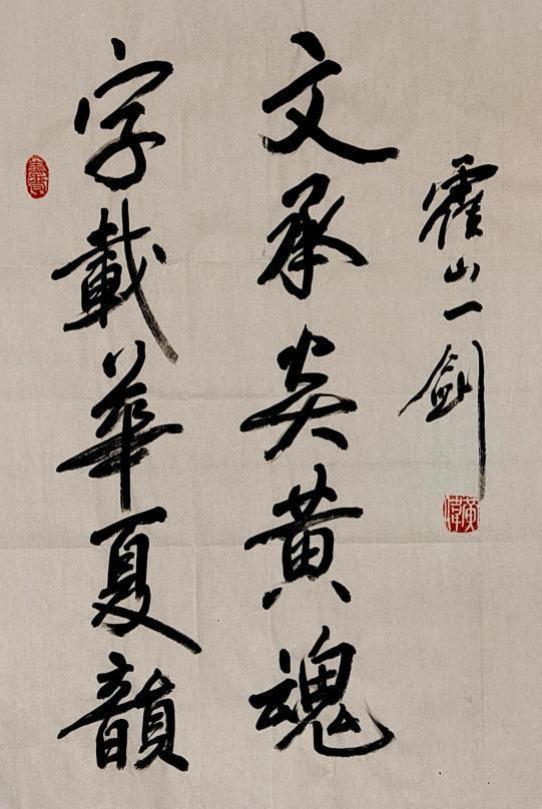 字載華夏韻
文承炎黄魂
霍山一劍